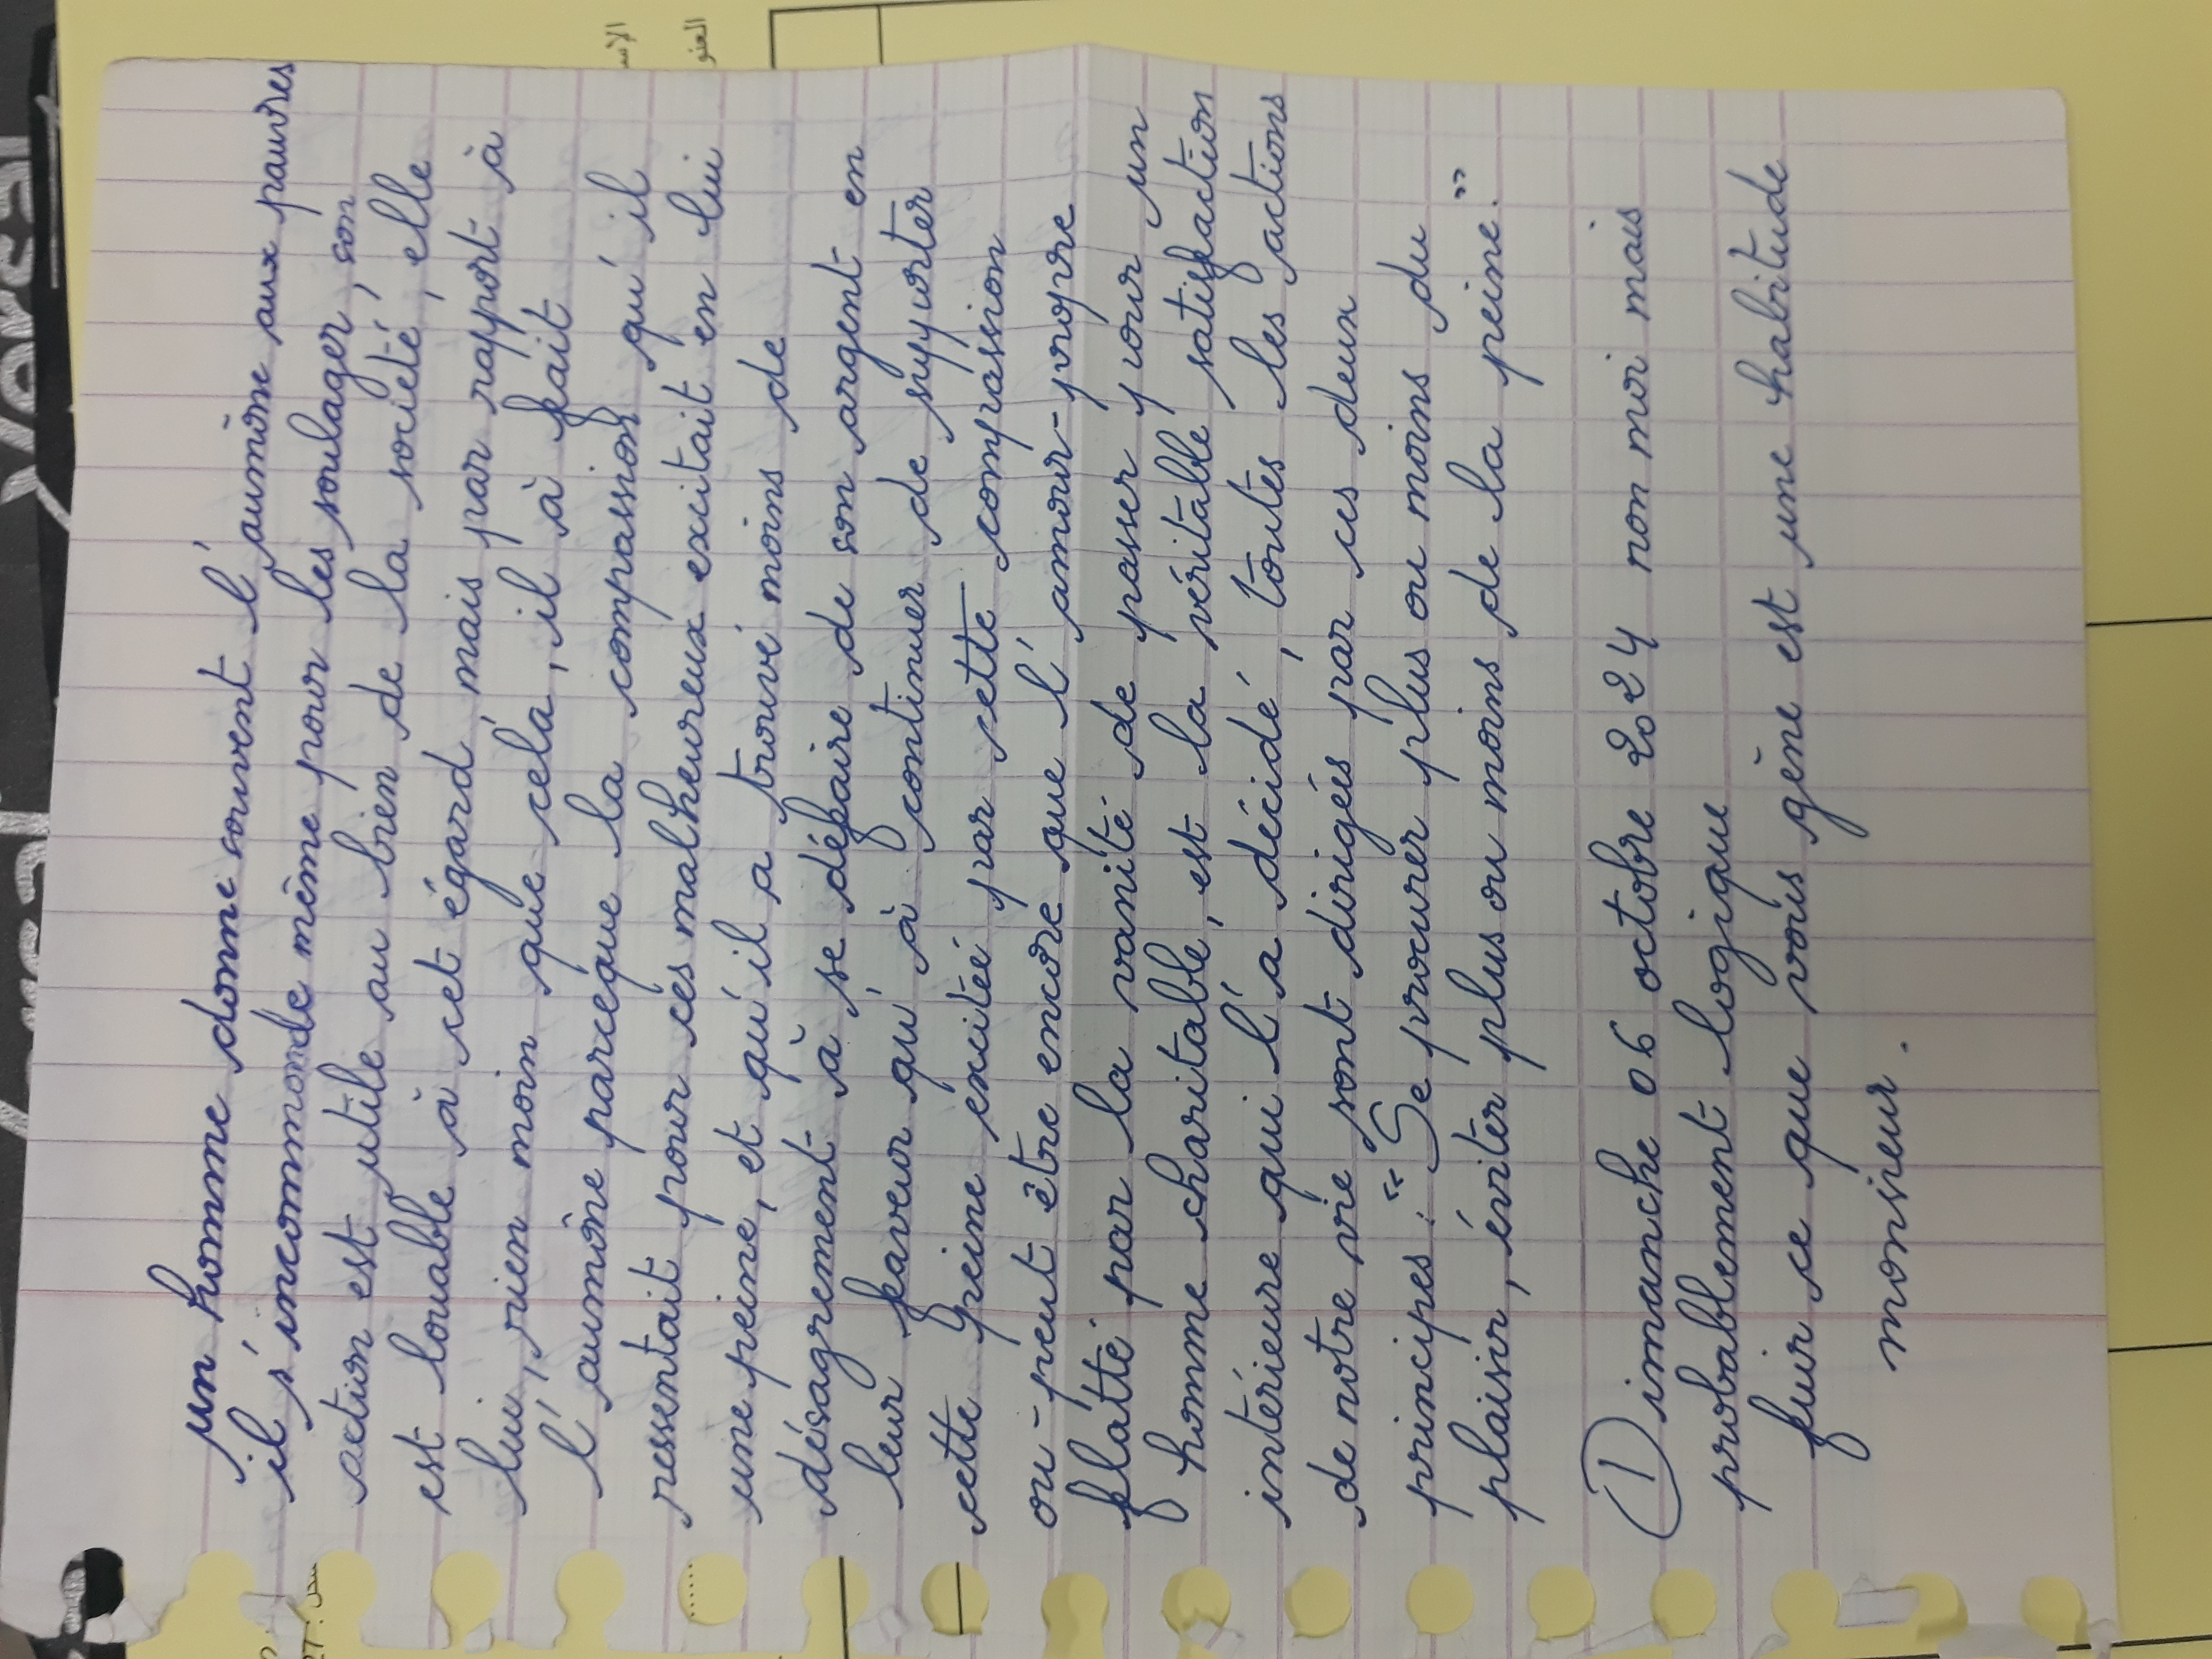 un homme donne souvent l'aumône aux pauvres
il s'incommode même pour les soulager, son
action est utile au bien de la société, elle
est louable à cet égard mais par rapport à
lui, rien moin que cela, il à fait
l'aumône parceque la compassion qu'il
ressentait pour ces malheureux excitait en lui
une peine, et qu'il a trouvé moins de
désagrement à se défaire de son argent en
leur faveur qu'à continuer de supporter
cette peine excitée par cette compassion
ou-peut être encore que l'amour-propre
flatté par la vanité de passer pour un
homme charitable, est la véritable satisfaction
intérieure qui l'a décidé, toutes les actions
de notre vie sont dirigées par ces deux
principes : "Se procurer plus ou moins du
plaisir, éviter plus ou moins de la peine."
Dimanche 06 octobre 2024 non moi mais
probablement logique
fuir ce que vous gène est une habitude
monsieur.